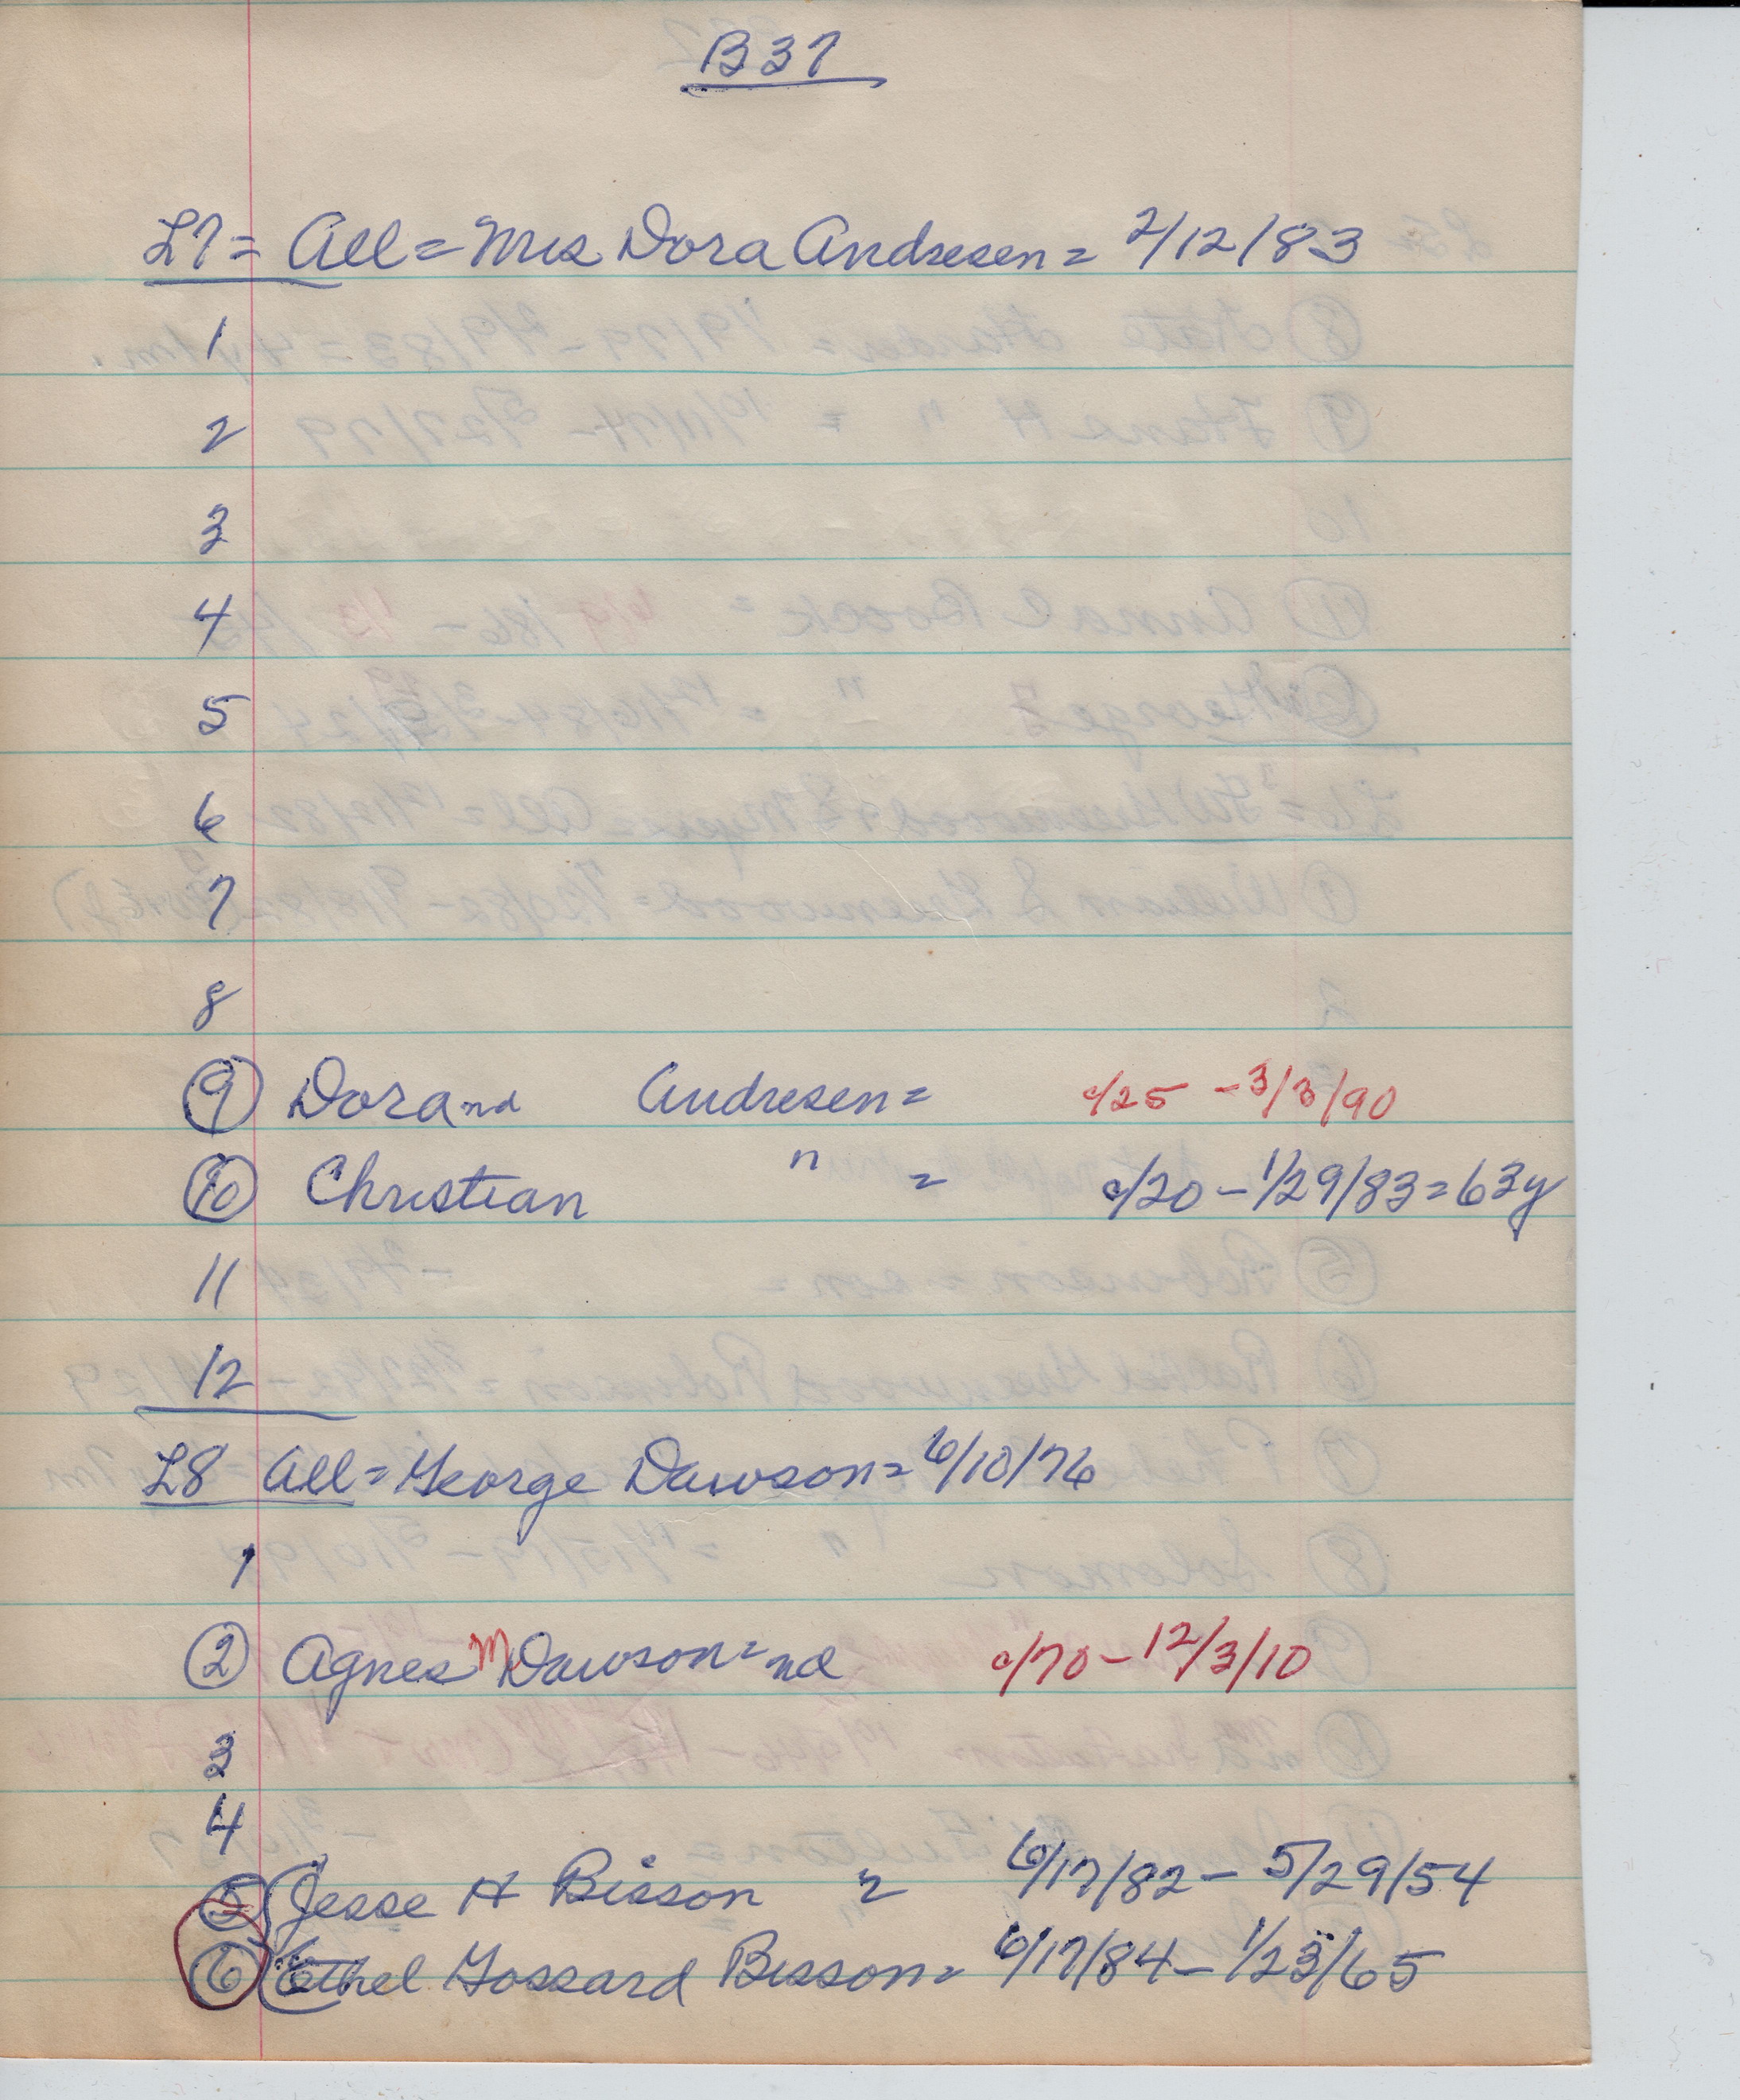 B37
L7 = All = Mrs Dora Andresen = 2/12/83
1
2
3
4
5
6
7
8
9 Dora nd Andresen = c/25 - 3/3/90
10 Christian " = c/20 - 1/29/83 = 63y
11
12
L8 All = George Dawson = 6/10/76
1
2 Agnes M Dawson = nd c/70 - 12/3/10
3
4
5 Jesse H Bisson = 6/17/82 - 5/29/54
6 Ethel Gossard Bisson = 6/17/84 - 1/23/65